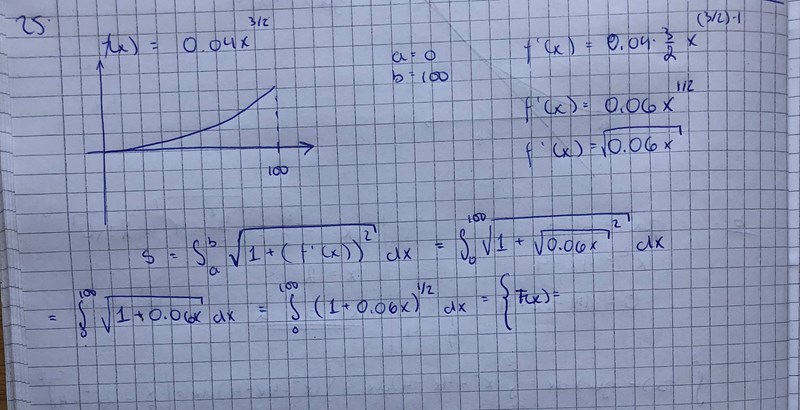 25.
f(x) = 0.04x^{3/2}
a = 0
b = 100
f'(x) = 0.04 · \frac{3}{2} x^{(3/2)-1}
f'(x) = 0.06x^{1/2}
f'(x) = \sqrt{0.06x}
100
s = ∫_a^b \sqrt{1 + (f'(x))^2} dx = ∫_0^{100} \sqrt{1 + \sqrt{0.06x}^2} dx
= ∫_0^{100} \sqrt{1 + 0.06x} dx = ∫_0^{100} (1 + 0.06x)^{1/2} dx = { F(x) =